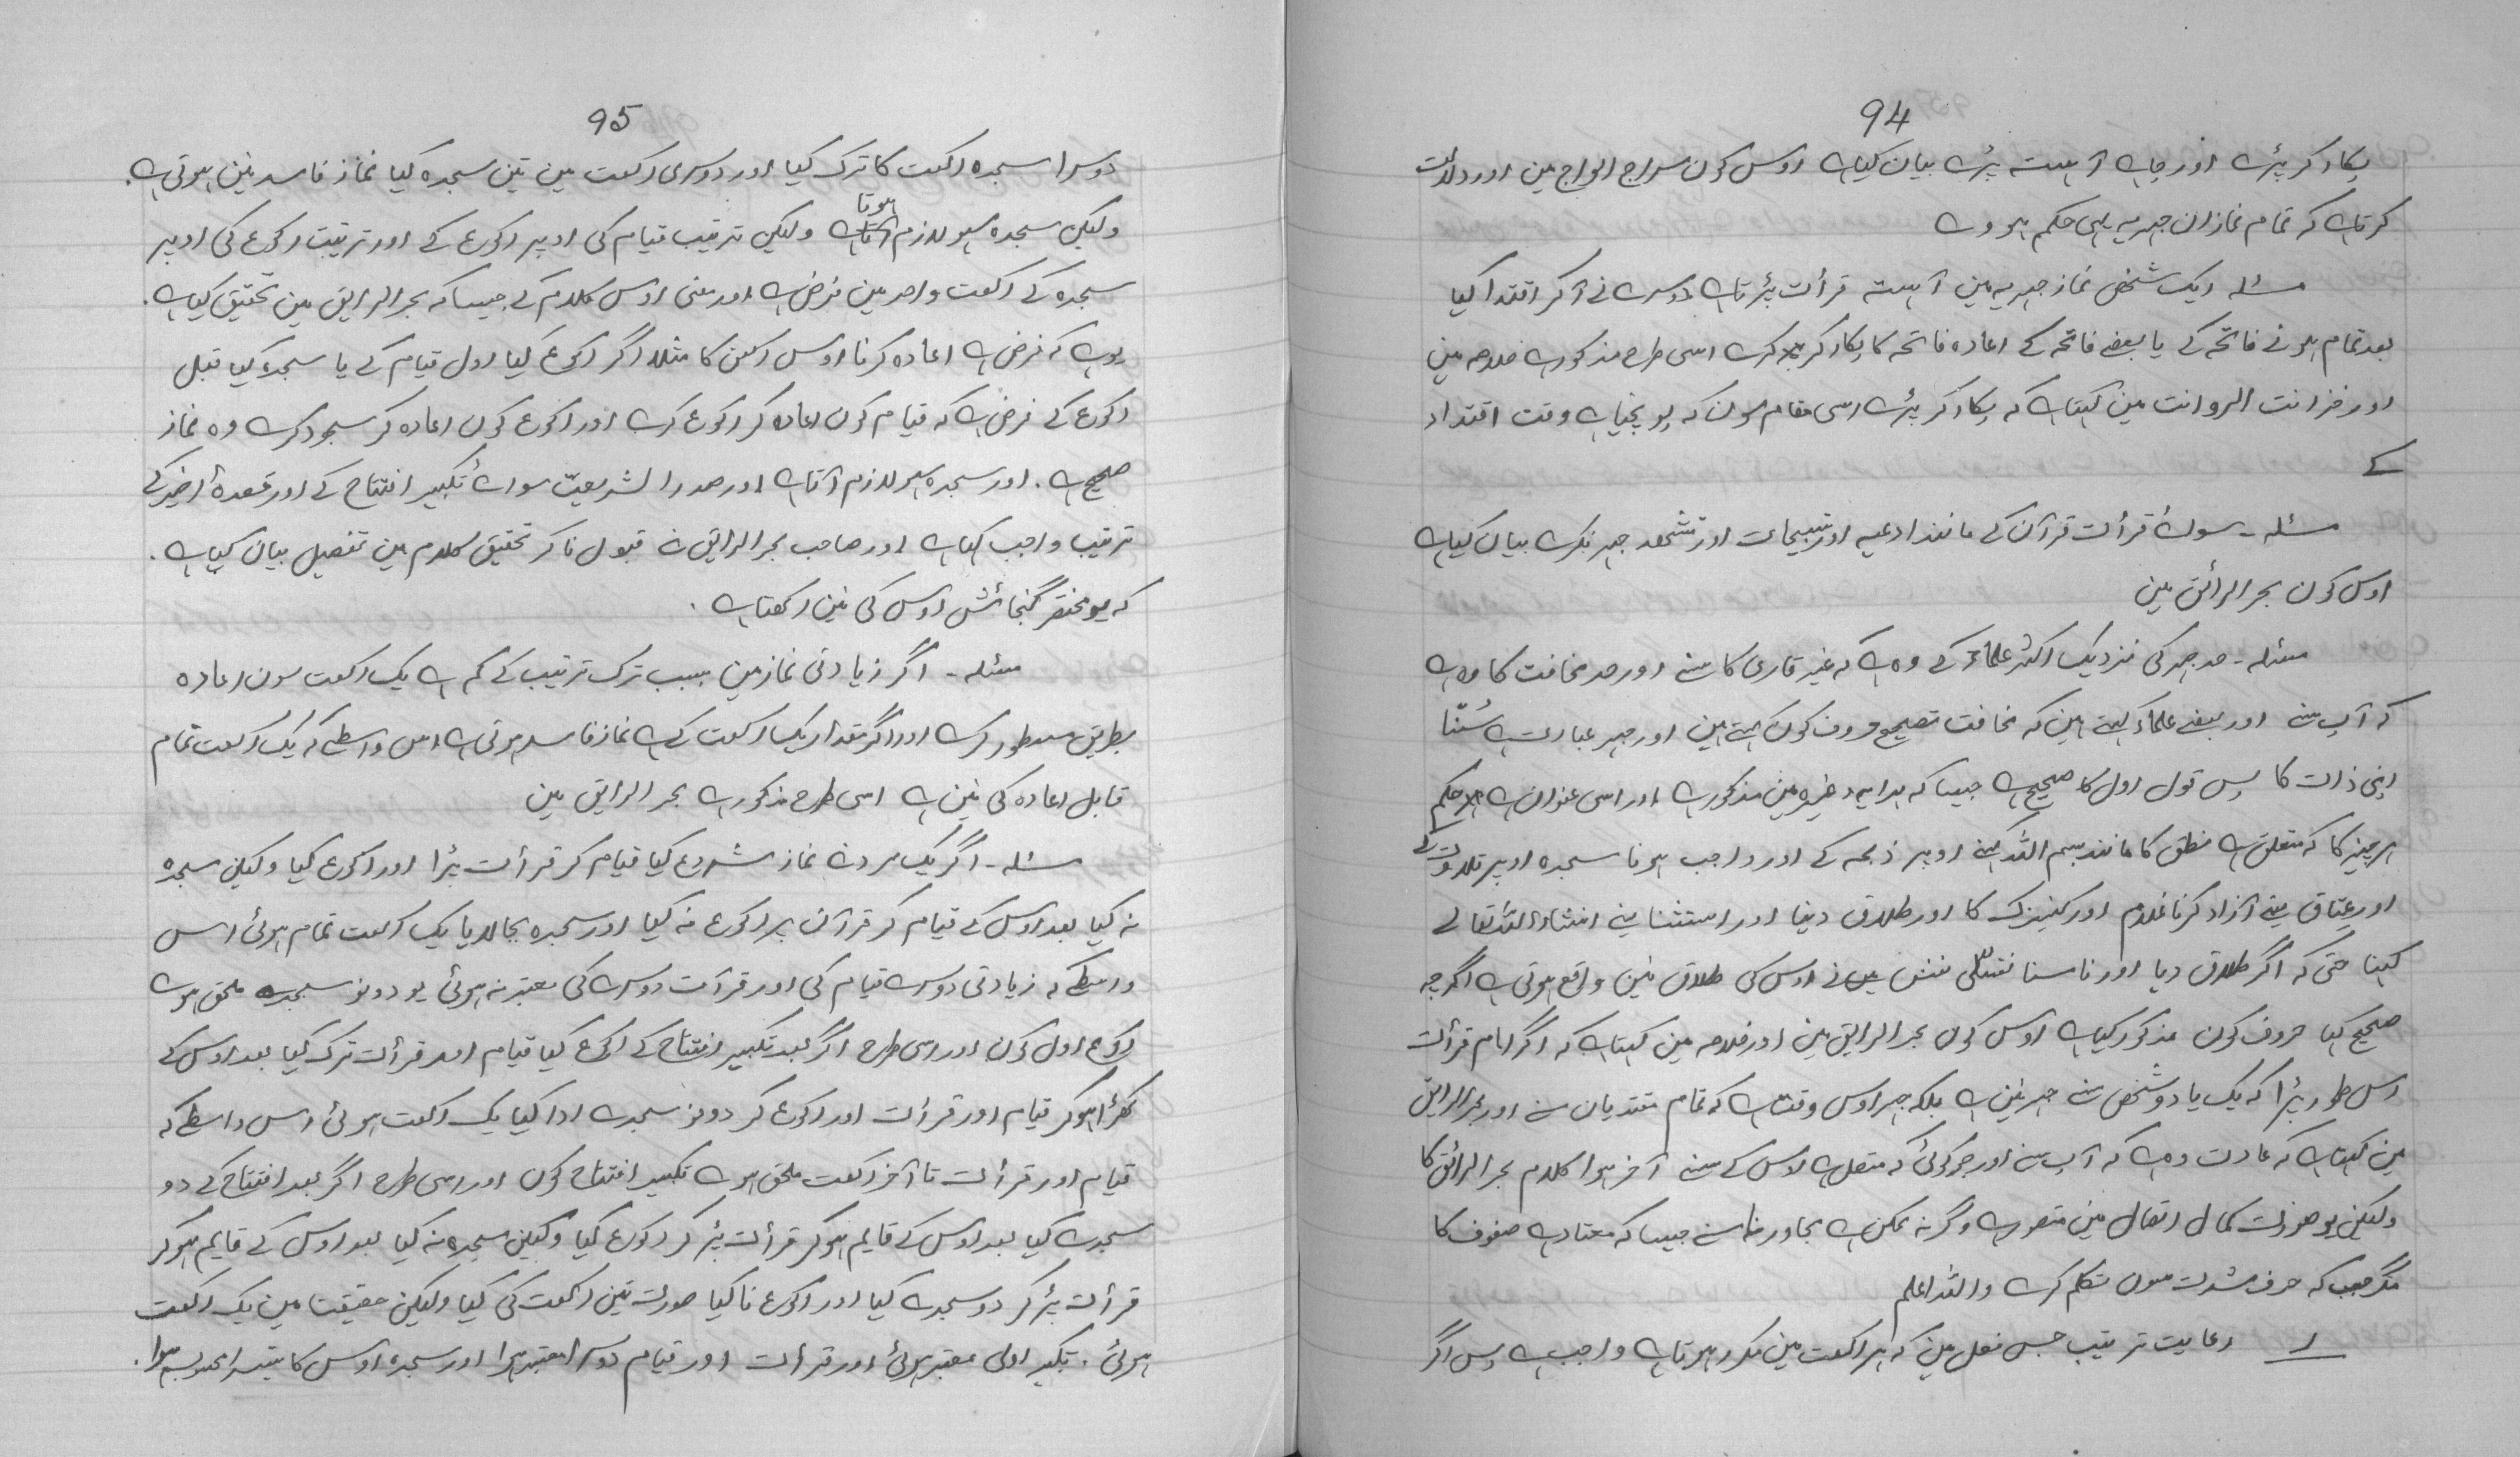 94
پکار کر پڑے اور چاہے آہستہ پڑے بیان کیاہے اوس کون سراج الوہاج مین اور دلالت
کرتاہے کہ تمام نمازان جہریہ یہی حکم ہووے
مسئلہ ایک شخص نماز جہریہ مین آہستہ قرأت پڑتاہے دوسرے نے آکر اقتدا کیا
بعد تمام ہونے فاتحہ کے یا بعضے فاتحہ کے اعادہ فاتحہ کا پکار کر کرے اسی طرح مذکورہے خلاصہ مین
اور خزانت الروایت مین کہتاہے کہ پکار کر پڑے اسی مقام سون کہ پونچیاہے وقت اقتداء
کے
مسئلہ ۔ سوائے قرأت قرآن کے مانند ادعیہ اور تسبیحات اور تشھد جہر نکرے بیان کیاہے
اوس کون بحر الرائق مین
مسئلہ ۔ حد جہر کی نزدیک اکثر علماء کے وہ ہے کہ غیر قاری کا سنے اور حد مخافت کا وہ ہے
کہ آپ سنے اور بعضے علماء کہتے ہین کہ مخافت تصحیح حروف کون کہتے ہین اور جہر عبارت ہے سُننّا
اپنی ذات کا پس قول اول کا صحیح ہے جیسا کہ ہدایہ وغیرہ مین مذکورہے اور اسی عنوان ہے حکم
ہر چیز کا کہ متعلق ہے نطق کا مانند بسم اللہ کہنے اوپر ذبحہ کے اور واجب ہونا سجدہ اوپر تلاوت کے
اور عتاق یعنے آزاد کرنا غلام اور کنیزک کا اور طلاق دینا اور استثنا یعنے انشاء اللہ تعالے
کہنا حتی کہ اگر طلاق دیا اور ناسنا نفس نے اوس کی طلاق نین واقع ہوتی ہے اگرچہ
صحیح کیا حروف کون مذکور کیاہے اوس کون بحر الرایق مین اور خلاصہ مین کہتاہے کہ اگر امام قرأت
اس طور پڑا کہ یک یا دو شخص سنے جہر نین ہے بلکہ جہر اوس وقت ہے کہ تمام مقتدیان سنے اور بحر الرایق
مین کہتاہے کہ عادت وہ ہے کہ آپ سنے اور جو کوئی کہ متصل ہے اوس کے سنے آخر ہوا کلام بحر الرائق کا
ولیکن یو صورت کمال اتصال مین متصورہے وگرنہ ممکن ہے مجاور نا سنے جیسا کہ معتادہے صفوف کا
مگر جب کہ حرف شدت سون تکلم کرے واللہ اعلم
رعایت ترتیب جس فعل مین کہ ہر رکعت مین مکرر ہوتاہے واجب ہے پس اگر
95
دوسرا سجدہ رکعت کا ترک کیا اور دوسری رکعت مین تین سجدہ کیا نماز فاسد نین ہوتی ہے ۔
ولیکن سجدہ سہو لازم ہوتا ہے ولیکن ترتیب قیام کی اوپر رکوع کے اور ترتیب رکوع کی اوپر
سجدہ کے رکعت واحد مین فرض ہے اور معنی اوس کلام کے جیسا کہ بحر الرایق مین تحقیق کیاہے ۔
یوہے کہ فرض ہے اعادہ کرنا اوس رکن کا مثلا اگر رکوع کیا اول قیام کے یا سجدہ کیا قبل
رکوع کے فرض ہے کہ قیام کون اعادہ کر رکوع کرے اور رکوع کون اعادہ کر سجود کرے وہ نماز
صحیح ہے ۔ اور سجدہ سہو لازم آتاہے اور صدر الشریعتّ سوائے تکبیر افتتاح کے اور قعدہ اخیر کے
ترتیب واجب کہاہے اور صاحب بحر الرایق نے قبول نا کر تحقیق کلام مین تفصیل بیان کیاہے ۔
کہ یو مختصر گنجائش اوس کی نین رکھتاہے ۔
مسئلہ ۔ اگر زیادتی نماز مین بسبب ترک ترتیب کے کم ہے یک رکعت سون اعادہ
بطریق مسطور کرے اور اگر مقدار یک رکعت کے ہے نماز فاسد ہوتی ہے اس واسطے کہ یک رکعت تمام
قابل اعادہ کی نین ہے اسی طرح مذکورہے بحر الرایق مین
مسئلہ ۔ اگر یک مرد نے نماز شروع کیا قیام کر قرأت پڑا اور رکوع کیا ولیکن سجدہ
نہ کیا بعد اوس کے قیام کر قرآن پر رکوع نہ کیا اور سجدہ بجا لایا یک رکعت تمام ہوئی اس
واسطے کہ زیادتی دوسرے قیام کی اور قرآت دوسرے کی معتبر نہ ہوئی یو دونو سجدے ملحق ہوے
رکوع اول کون اور اسی طرح اگر بعد تکبیر افتتاح کے رکوع کیا قیام اور قرأت ترک کیا بعد اوس کے
کھڑا ہوکر قیام اور قرأت اور رکوع کر دونو سجدے ادا کیا یک رکعت ہوئی اس واسطے کہ
قیام اور قرأت تا آخر رکعت ملحق ہوے تکبیر افتتاح کون اور اسی طرح اگر بعد افتتاح کے دو
سجدے کیا بعد اوس کے قایم ہوکر قرأت پڑ کر رکوع کیا ولیکن سجدہ نہ کیا بعد اوس کے قایم ہوکر
قرأت پڑ کر دو سجدے کیا اور رکوع نا کیا صورت تین رکعت کی کیا ولیکن حقیقت مین یک رکعت
ہوئی ۔ تکبیر اولی معتبر ہوئی اور قرأت اور قیام دوسرا معتبر ہوا اور سجدہ اوس کا تیسرا محسوب ہوا ۔